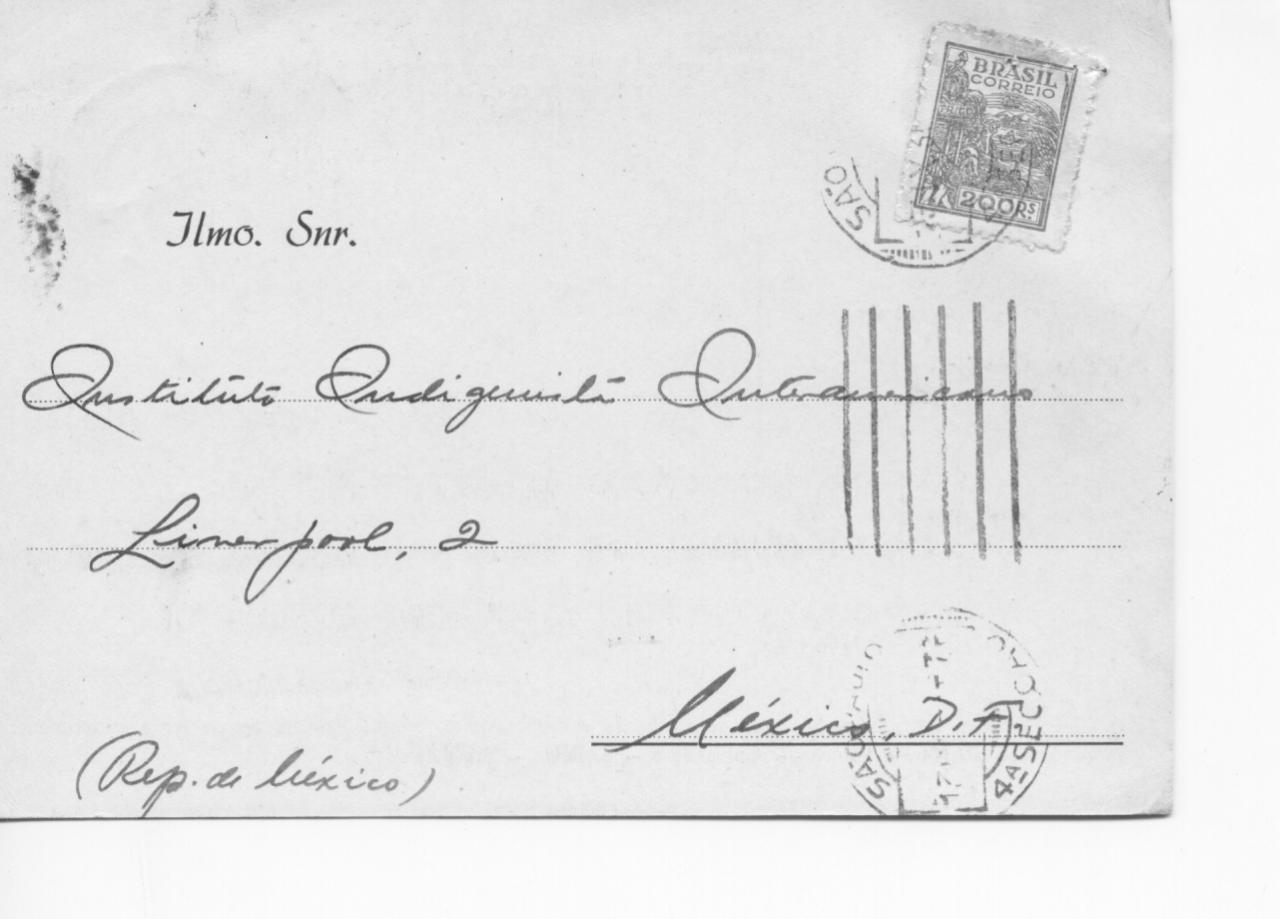 BRASIL
CORREIO
200RS
SÃO
Ilmo. Snr.
Instituto Indigenista Interamericano
Liverpool, 2
México, D.F.
SÃO PAULO
4ªSECÇÃO
(Rep. de México)